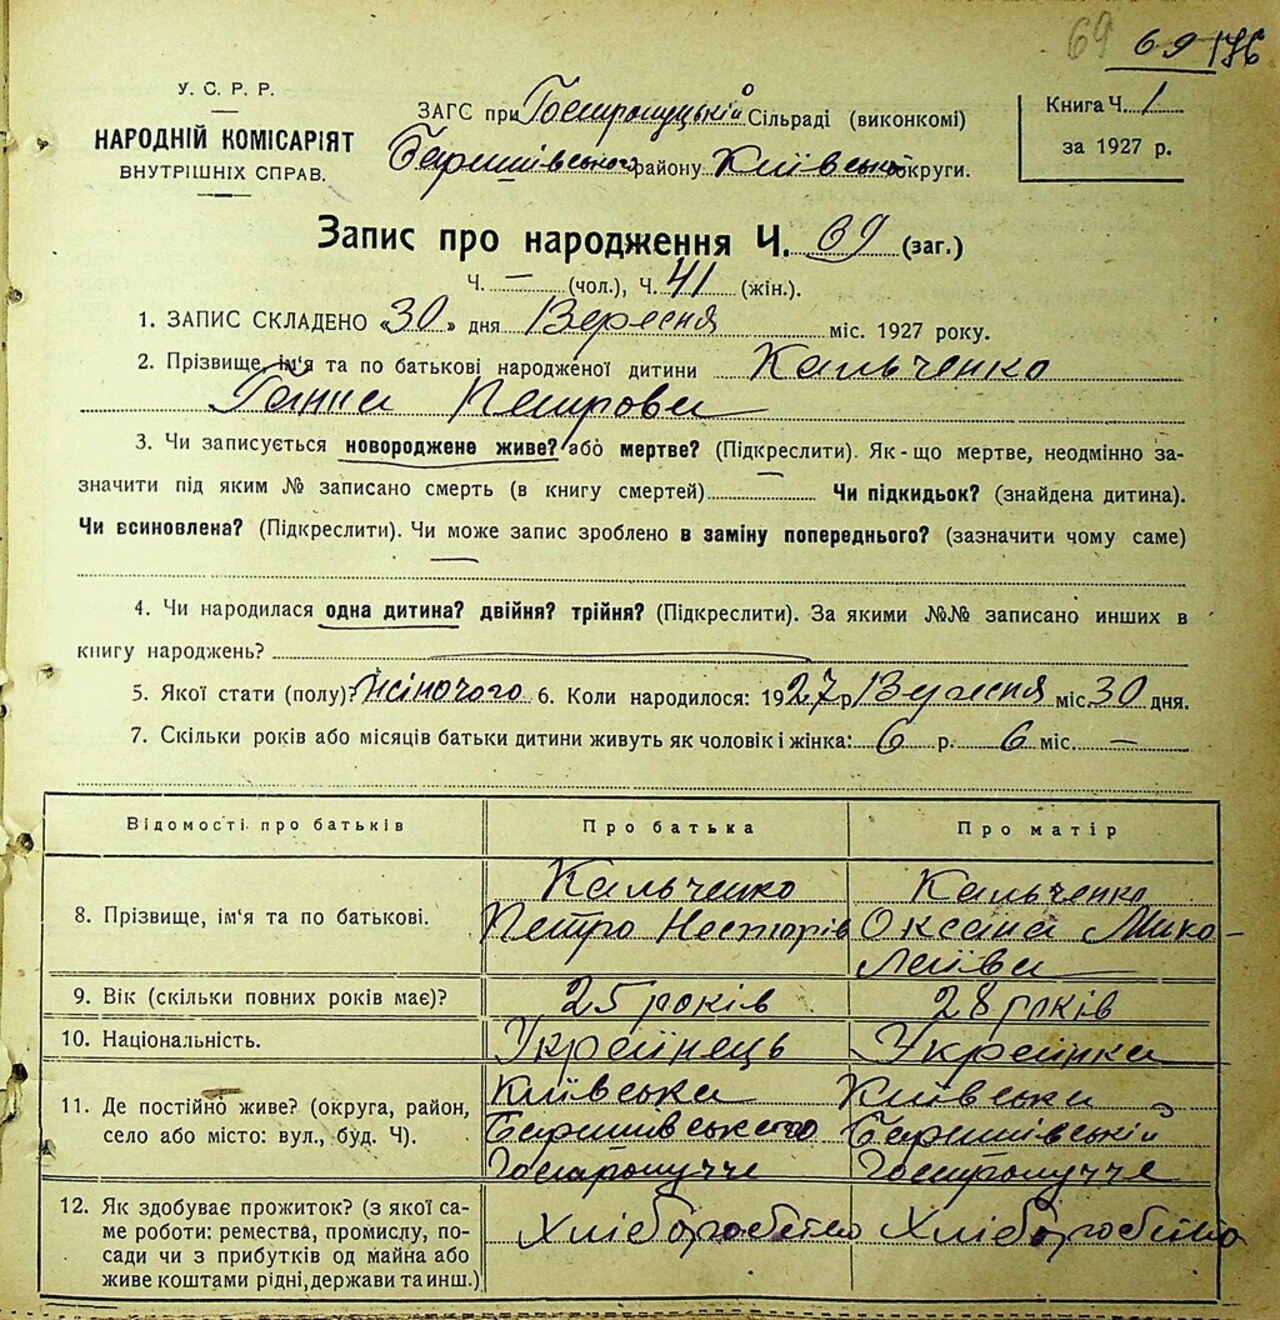 69 69 196
У. С. Р. Р.
НАРОДНІЙ КОМІСАРІЯТ
ВНУТРІШНІХ СПРАВ.
ЗАГС при Гостролуцькій Сільраді (виконкомі)
Баришівського району Київської округи.
Книга Ч. 1
за 1927 р.
Запис про народження Ч. 69 (заг.)
Ч. — (чол.), Ч. 41 (жін.).
1. ЗАПИС СКЛАДЕНО «30» дня Вересня міс. 1927 року.
2. Прізвище, ім'я та по батькові народженої дитини Кальченко
Ганна Петрова
3. Чи записується новороджене живе? або мертве? (Підкреслити). Як-що мертве, неодмінно за-
значити під яким № записано смерть (в книгу смертей) — Чи підкидьок? (знайдена дитина).
Чи всиновлена? (Підкреслити). Чи може запис зроблено в заміну попереднього? (зазначити чому саме)
4. Чи народилася одна дитина? двійня? трійня? (Підкреслити). За якими №№ записано инших в
книгу народжень?
5. Якої стати (полу)? жіночого 6. Коли народилося: 1927 р Вересня міс. 30 дня.
7. Скільки років або місяців батьки дитини живуть як чоловік і жінка: 6 р. 6 міс. —
Відомості про батьків Про батька Про матір
8. Прізвище, ім'я та по батькові.
Кальченко
Петро Несторів
Кальченко
Оксана Мико-
лаїва
9. Вік (скільки повних років має)? 25 років 28 років
10. Національність. Українець Українка
11. Де постійно живе? (округа, район,
село або місто: вул., буд. Ч).
Київська
Баришівського
Гостролуччє
Київська
Баришівській
Гостролуччє
12. Як здобуває прожиток? (з якої са-
ме роботи: ремества, промислу, по-
сади чи з прибутків од майна або
живе коштами рідні, держави та инш.)
Хліборобство
Хліборобство